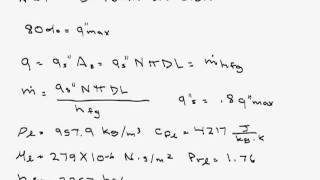 80% = q"max
q = qs" As = qs" N π D L = ṁ hfg
ṁ = qs" N π D L / hfg qs" = .8 q"max
ρl = 957.9 kg/m³ cpl = 4217 J/kg·K
μl = 279 x 10-6 N·s/m² Prl = 1.76